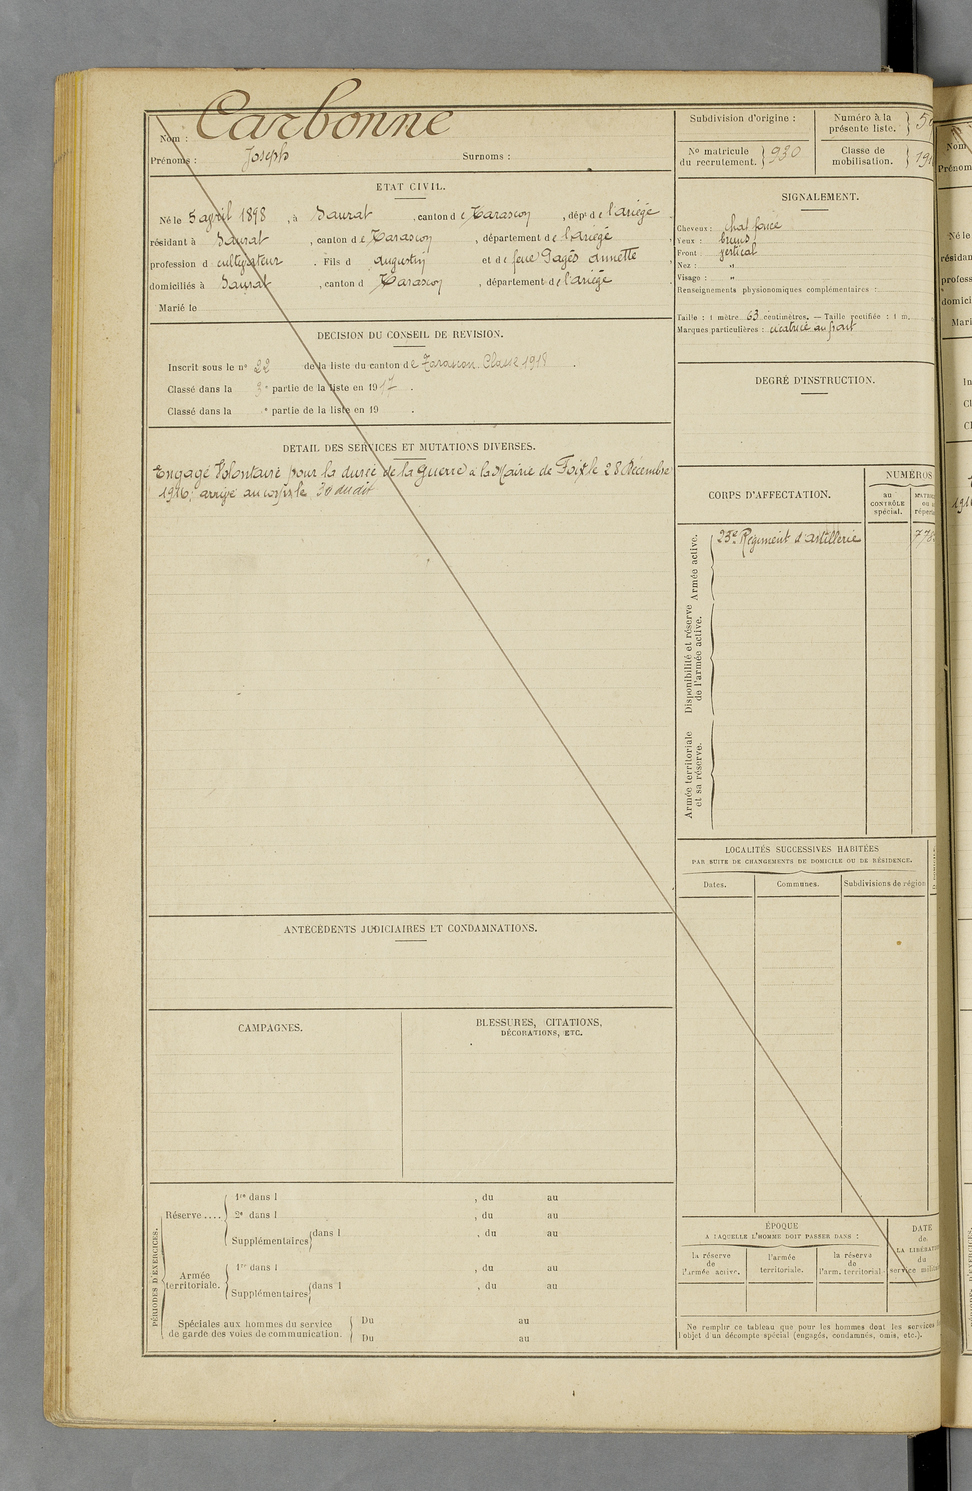 Nom : Carbonne
Prénoms : Joseph Surnoms :
ETAT CIVIL.
Né le 5 avril 1898, à Saurat, canton de Tarascon, dépt de l'ariège
résidant à Saurat, canton de Tarascon, département de l'Ariège
profession d cultivateur. Fils d augustin et de feue Pagés annette
domiciliés à Saurat, canton d Tarascon, département de l'ariège
Marié le
DECISION DU CONSEIL DE REVISION.
Inscrit sous le n° 22 de la liste du canton de Tarascon. Classe 1918.
Classé dans la 3e partie de la liste en 1917.
Classé dans la e partie de la liste en 19 .
DETAIL DES SERVICES ET MUTATIONS DIVERSES.
Engagé Volontaire pour la durée de la Guerre a la Mairie de Foix le 28 Décembre
1916; arrivé au corps le 30 du dit
ANTÉCÉDENTS JUDICIAIRES ET CONDAMNATIONS.
CAMPAGNES.
BLESSURES, CITATIONS,
DÉCORATIONS, ETC.
PÉRIODES D'EXERCICES.
Réserve ....
1re dans l , du au
2e dans l , du au
Supplémentaires dans l , du au
Armée
territoriale.
1re dans l , du au
Supplémentaires dans l , du au
Spéciales aux hommes du service
de garde des voies de communication.
Du au
Du au
Subdivision d'origine :
Numéro à la
présente liste.
No matricule
du recrutement. 930
Classe de
mobilisation. 191
SIGNALEMENT.
Cheveux : chat foncé
Yeux : bruns
Front : vertical
Nez : "
Visage : "
Renseignements physionomiques complémentaires :
Taille : 1 mètre 63 centimètres. — Taille rectifiée : 1 m.
Marques particulières : cicatrice au front
DEGRÉ D'INSTRUCTION.
CORPS D'AFFECTATION.
NUMÉROS
au
CONTRÔLE
spécial.
Armée active.
23e Régiment d'artillerie
Disponibilité et réserve
de l'armée active.
Armée territoriale
et sa réserve.
LOCALITÉS SUCCESSIVES HABITÉES
PAR SUITE DE CHANGEMENTS DE DOMICILE OU DE RÉSIDENCE.
Dates. Communes. Subdivisions de région
ÉPOQUE
A LAQUELLE L'HOMME DOIT PASSER DANS :
la réserve
de
l'armée active.
l'armée
territoriale.
la réserve
de
l'arm. territorial
DATE
de
LA LIBÉRAT
du
service milit
Ne remplir ce tableau que pour les hommes dont les services
l'objet d'un décompte spécial (engagés, condamnés, omis, etc.).